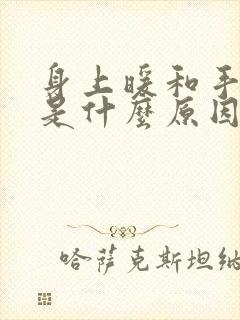 身上暖和手
是什麼原因
哈萨克斯坦纳